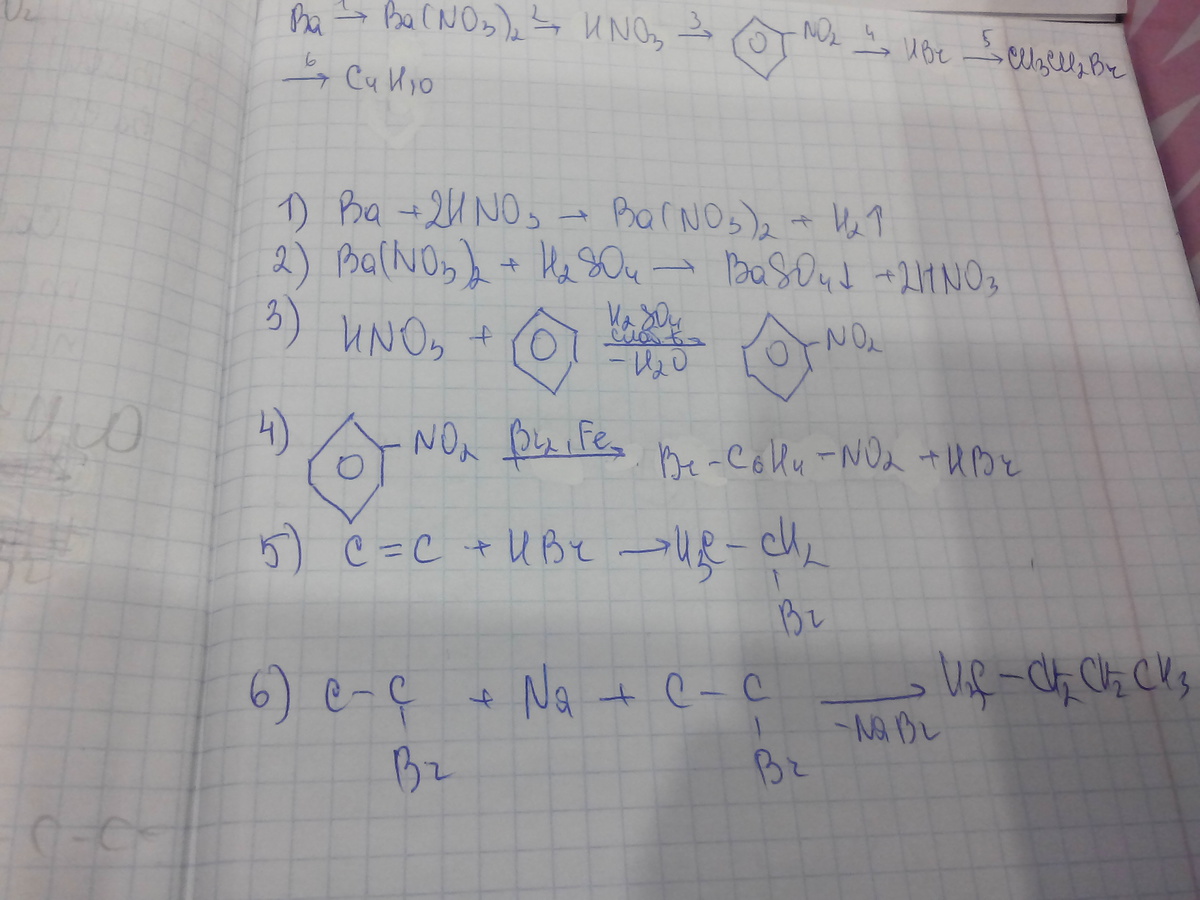 Ba 1→ Ba(NO3)2 2→ HNO3 3→ -NO2 4→ HBr 5→ CH3CH2Br
6→ C4H10
1) Ba + 2HNO3 → Ba(NO3)2 + H2↑
2) Ba(NO3)2 + H2SO4 → BaSO4↓ + 2HNO3
3) HNO3 + H2SO4 -H2O → -NO2
4) -NO2 Br2, Fe → Br-C6H4-NO2 + HBr
5) C=C + HBr → H3C-CH2
Br
6) C-C + Na + C-C -NaBr → H3C-CH2CH2CH3
Br Br
C-C